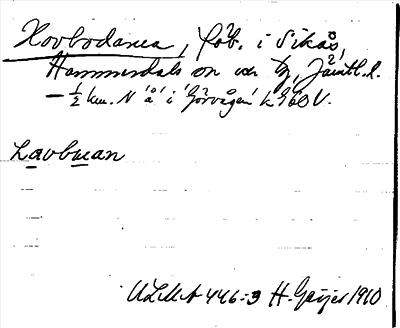 Hovbodarna, fäb. i Sikås,
Hammerdals sn, Jämtl. l.
— ½ km. N 'å' i 'Görvågen' k 960 V.
Lavbuan
ULMA 446:3 H. Geijer 1910